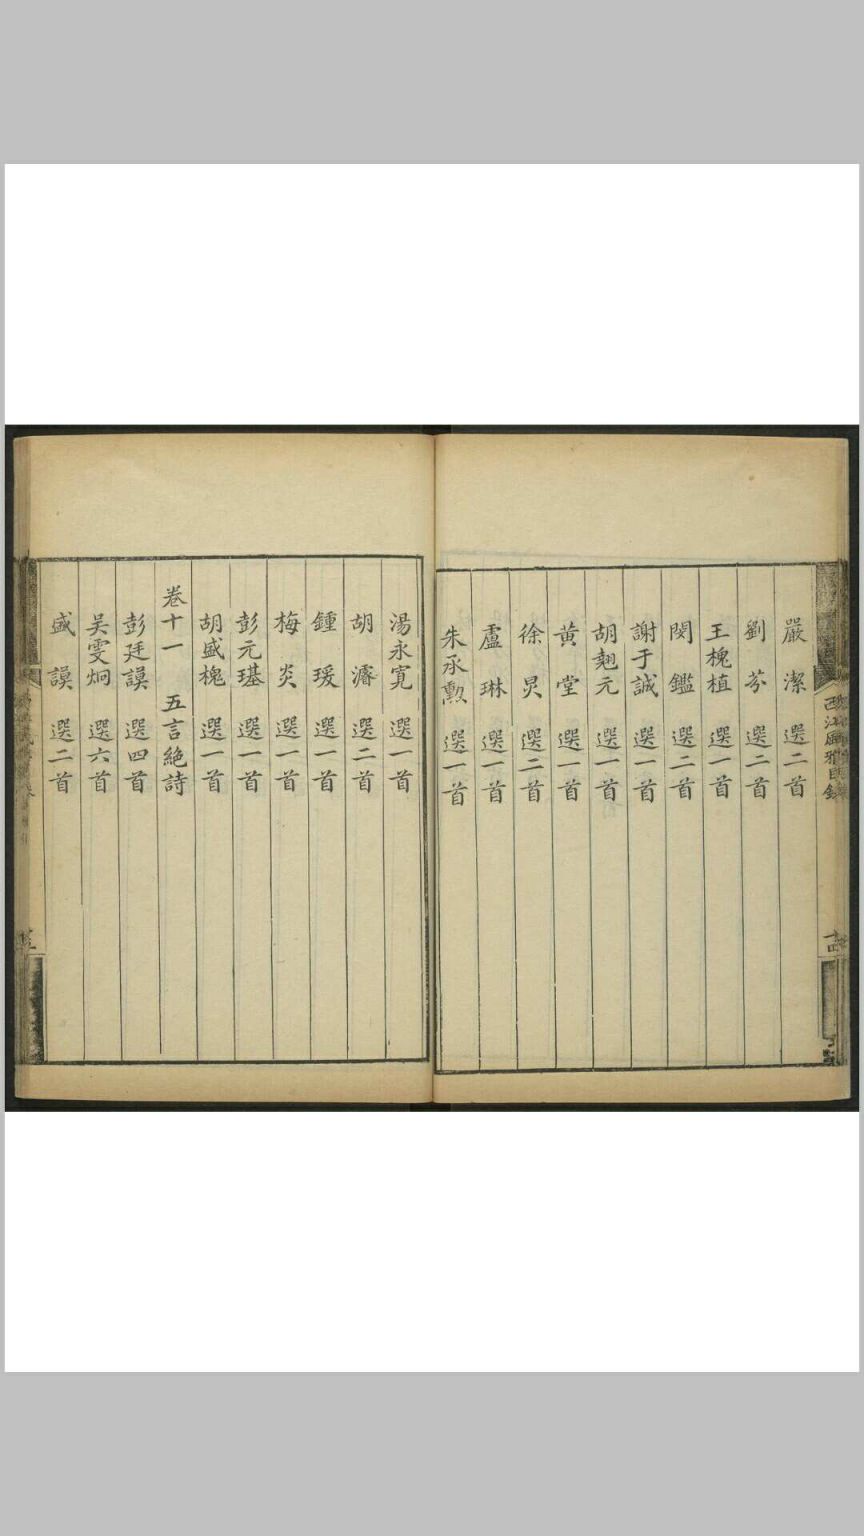 嚴　潔　選二首
劉　芬　選二首
王槐植　選一首
閔　鑑　選二首
謝于誠　選一首
胡翹元　選一首
黄　堂　選一首
徐　炅　選二首
盧　琳　選一首
朱承勲　選一首
湯永寬　選一首
胡　濬　選二首
鍾　瑗　選一首
梅　炎　選一首
彭元璂　選一首
胡盛槐　選一首
卷十一　五言絶詩
彭廷謨　選四首
吴雯炯　選六首
盛　謨　選二首
西江風雅目錄